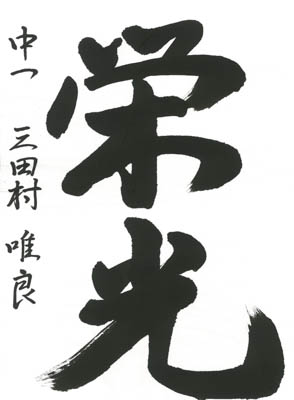 栄光
中一 三田村 唯良